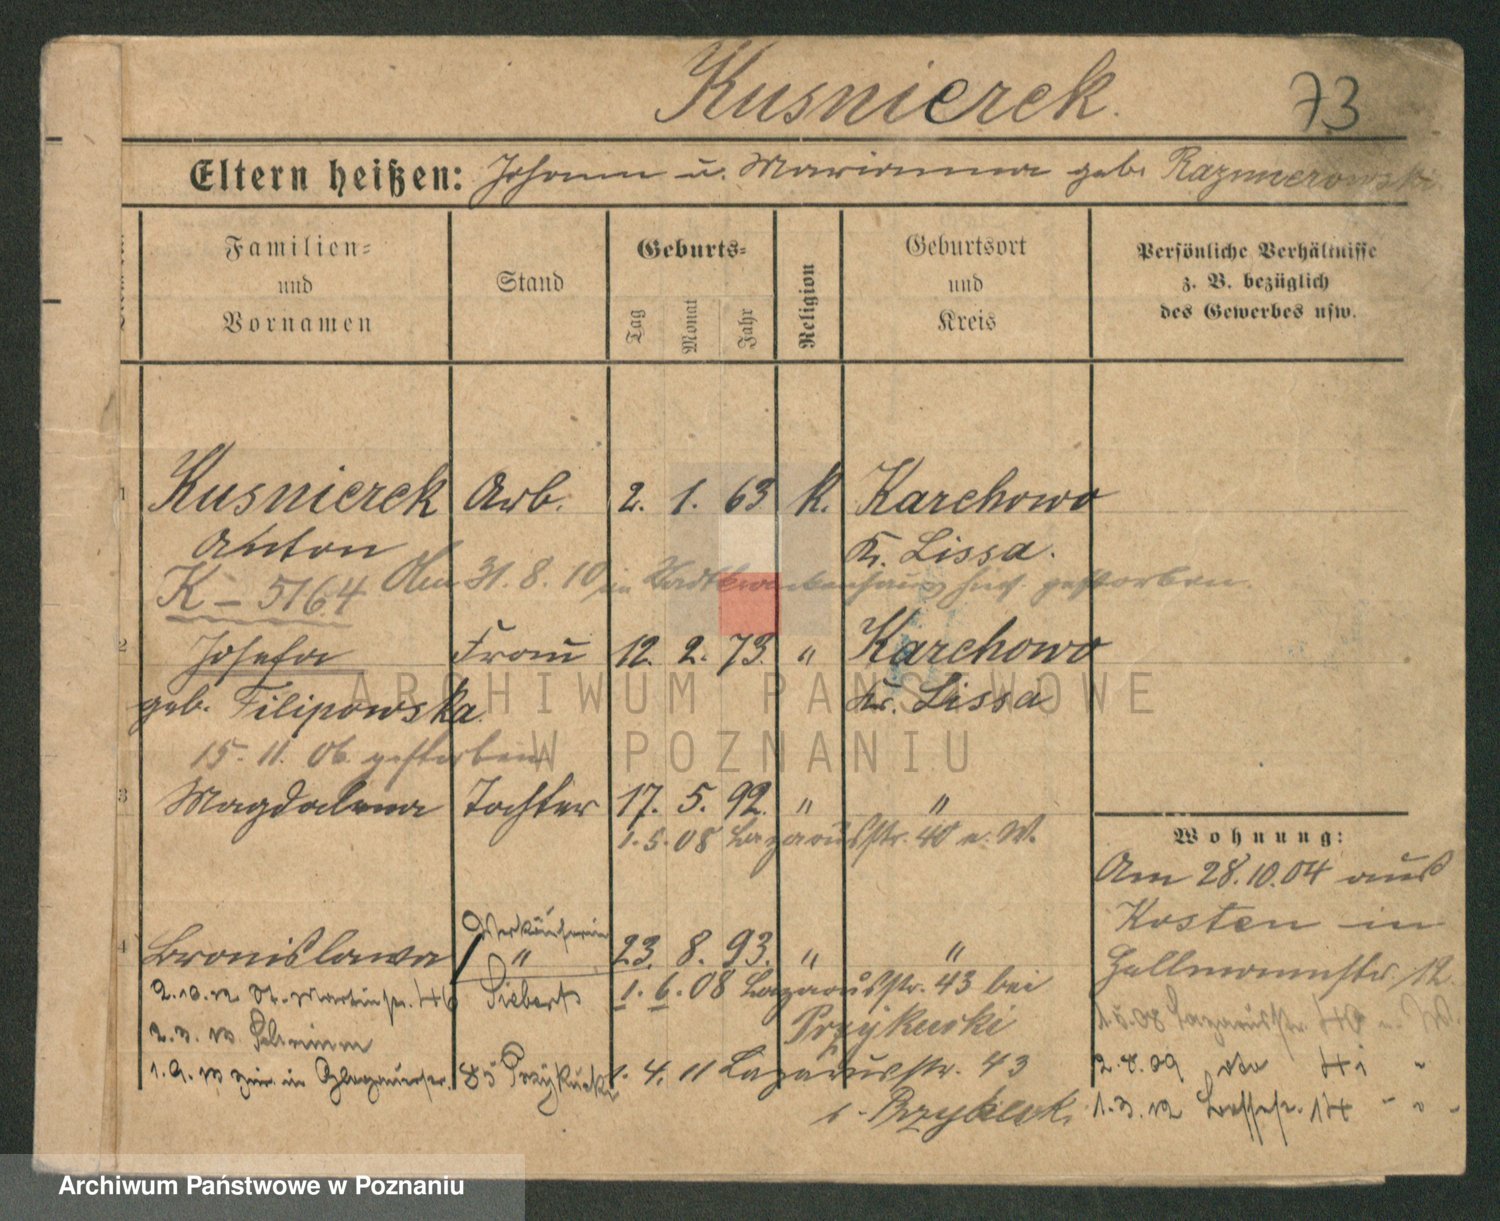 Kusnierek.
73
Eltern heißen: Johann u. Marianna geb. Kazmierowski
Familien- und Vornamen
Stand
Geburts-
Tag
Monat
Jahr
Religion
Geburtsort und Kreis
Persönliche Verhältnisse z. B. bezüglich des Gewerbes usw.
1 Kusnierek Arb. 2. 1. 63 k. Karchowo
Anton Kr. Lissa.
K – 5164 Am 31. 8. 10 in Stadtkrankenhaus gestorben.
2 Josefa Frau 12. 2. 73. " Karchowo
geb. Filipowska Kr. Lissa
15. 11. 06. gestorben
3 Magdalena Tochter 17. 5. 92. " "
1. 5. 08 Lazarusstr. 40 e. W.
Wohnung:
Am 28.10.04 aus
Kosten in
Hallmannstr. 12.
1.5.08 Lazarusstr. 40 e. W.
2.8.09 41 "
1.3.12 14 " "
Verkäuferin
4 Bronislawa " 23. 8. 93. " "
2.10.12 St. Martinstr. 46 Siebert
1. 6. 08 Lazarusstr. 43 bei
Przykucki
1. 4. 11 Lazarusstr. 43
ARCHIWUM PAŃSTWOWE
W POZNANIU
Archiwum Państwowe w Poznaniu